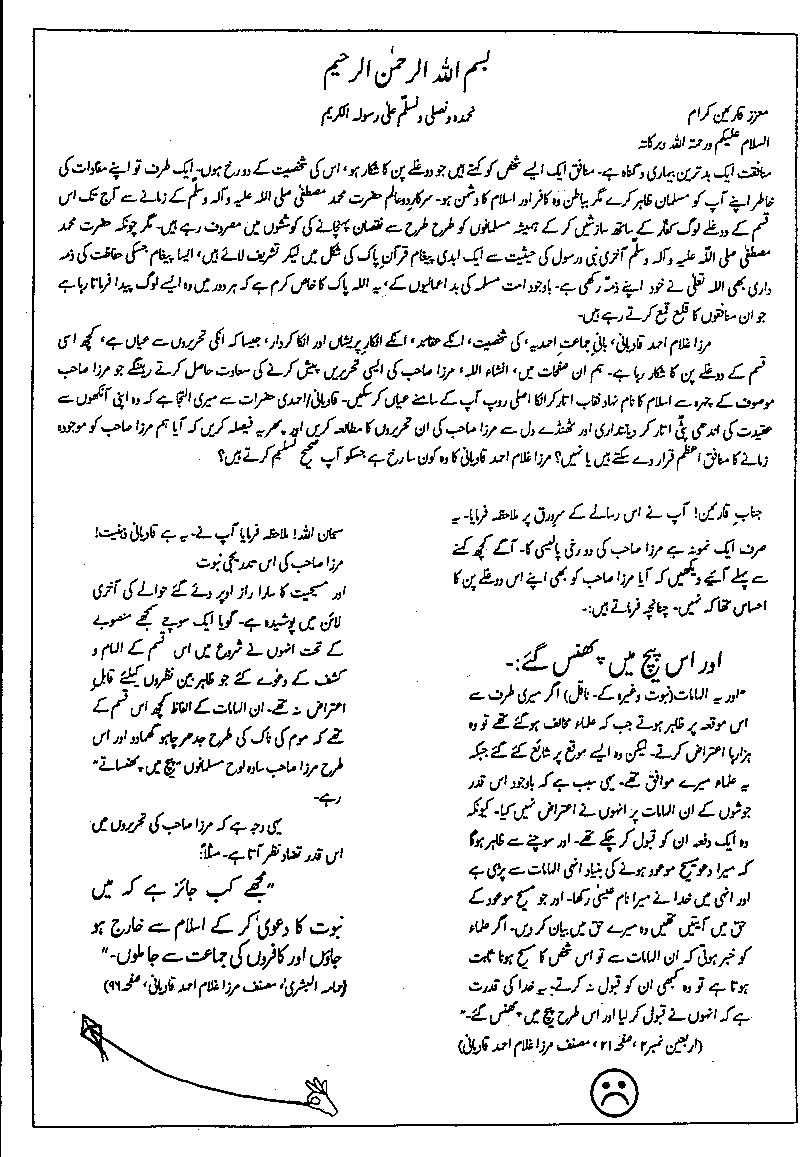 بسم اللہ الرحمٰن الرحیم
نحمدہ و نصلی و نسلّم علیٰ رسولہ الکریم
معزز قارئین کرام
السلام علیکم ورحمتہ اللہ وبرکاتہ
منافقت ایک بدترین بیماری و گناہ ہے۔ منافق ایک ایسے شخص کو کہتے ہیں جو دوغلے پن کا شکار ہو، اس کی شخصیت کے دو رخ ہوں۔ ایک طرف تو اپنے مفادات کی
خاطر اپنے آپ کو مسلمان ظاہر کرے مگر بباطن وہ کافر اور اسلام کا دشمن ہو۔ سرکارِ دوعالم حضرت محمد مصطفٰی صلی اللہ علیہ و آلہ وسلّم کے زمانے سے آج تک اس
قسم کے دوغلے لوگ کفّار کے ساتھ سازشیں کر کے ہمیشہ مسلمانوں کو طرح طرح سے نقصان پہنچانے کی کوششوں میں مصروف رہے ہیں۔ مگر چونکہ حضرت محمد
مصطفٰی صلی اللہ علیہ و آلہ وسلّم آخری نبی و رسول کی حیثیت سے ایک ابدی پیغام قرآنِ پاک کی شکل میں لیکر تشریف لائے ہیں، ایسا پیغام جسکی حفاظت کی ذمہ
داری بھی اللہ تعلٰی نے خود اپنے ذمّہ رکھی ہے۔ باوجود امت مسلمہ کی بداعمالیوں کے، یہ اللہ پاک کا خاص کرم ہے کہ ہر دور میں وہ ایسے لوگ پیدا فرماتا رہا ہے
جو ان منافقوں کا قلع قمع کرتے رہے ہیں۔
مرزا غلام احمد قادیانی، بانیٔ جماعتِ احمدیہ، کی شخصیت، انکے عقائد، انکے افکارِ پریشاں اور انکا کردار، جیسا کہ انکی تحریروں سے عیاں ہے، کچھ اسی
قسم کے دوغلے پن کا شکار رہا ہے۔ ہم ان صفحات میں، انشاء اللہ، مرزا صاحب کی ایسی تحریریں پیش کرنے کی سعادت حاصل کرتے رہینگے جو مرزا صاحب
موصوف کے چہرہ سے اسلام کا نام نہاد نقاب اتار کر انکا اصلی روپ آپ کے سامنے عیاں کر سکیں۔ قادیانی/احمدی حضرات سے میری التجا ہے کہ وہ اپنی آنکھوں سے
عقیدت کی اندھی پٹّی اتار کر دیانتداری اور ٹھنڈے دل سے مرزا صاحب کی ان تحریروں کا مطالعہ کریں اور پھر یہ فیصلہ کریں کہ آیا ہم مرزا صاحب کو موجودہ
زمانے کا منافقِ اعظم قرار دے سکتے ہیں یا نہیں؟ مرزا غلام احمد قادیانی کا وہ کون سا رخ ہے جسکو آپ صحیح تسلیم کرتے ہیں؟
جنابِ قارئین! آپ نے اس رسالے کے سرورق پر ملاحظہ فرمایا۔ یہ
صرف ایک نمونہ ہے مرزا صاحب کی دو رخی پالیسی کا۔ آگے کچھ کہنے
سے پہلے آیئے دیکھیں کہ آیا مرزا صاحب کو بھی اپنے اس دوغلے پن کا
احساس تھا کہ نہیں۔ چنانچہ فرماتے ہیں:۔
اور اس پیچ میں پھنس گئے:۔
"اور یہ الہامات (نبوت وغیرہ کے۔ ناقل) اگر میری طرف سے
اس موقعہ پر ظاہر ہوتے جب کہ علماء مخالف ہو گئے تھے تو وہ
ہزارہا اعتراض کرتے۔ لیکن وہ ایسے موقع پر شائع کئے گئے جبکہ
یہ علماء میرے موافق تھے۔ یہی سبب ہے کہ باوجود اس قدر
جوشوں کے ان الہامات پر انہوں نے اعتراض نہیں کیا۔ کیونکہ
وہ ایک دفعہ ان کو قبول کر چکے تھے۔ اور سوچنے سے ظاہر ہوگا
کہ میرا دعویٰ مسیح موعود ہونے کی بنیاد انہی الہامات سے پڑی ہے
اور انہی میں خدا نے میرا نام عیسیٰ رکھا۔ اور جو مسیح موعود کے
حق میں آیتیں تھیں وہ میرے حق میں بیان کر دیں۔ اگر علماء
کو خبر ہوتی کہ ان الہامات سے تو اس شخص کا مسیح ہونا ثابت
ہوتا ہے تو وہ کبھی ان کو قبول نہ کرتے یہ خدا کی قدرت
ہے کہ انہوں نے قبول کر لیا اور اس طرح پیچ میں پھنس گئے۔"
(اربعین نمبر ۲، صفحہ ۲۱، مصنف مرزا غلام احمد قادیانی)
سبحان اللہ! ملاحظہ فرمایا آپ نے۔ یہ ہے قادیانی ذہنیت!
مرزا صاحب کی اس تدریجی نبوت
اور مسیحیت کا سارا راز اوپر دئے گئے حوالے کی آخری
لائن میں پوشیدہ ہے۔ گویا ایک سوچے سمجھے منصوبے
کے تحت انہوں نے شروع میں اس قسم کے الہام و
کشف کے دعوے کئے جو ظاہر بین نظروں کیلئے قابلِ
اعتراض نہ تھے۔ ان الہامات کے الفاظ کچھ اس قسم کے
تھے کہ موم کی ناک کی طرح جدھر چاہو گھما دو اور اس
طرح مرزا صاحب سادہ لوح مسلمانوں "پیچ میں پھنساتے"
رہے۔
یہی وجہ ہے کہ مرزا صاحب کی تحریروں میں
اس قدر تضاد نظر آتا ہے۔ مثلاً:
"مجھے کب جائز ہے کہ میں
نبوت کا دعویٰ کر کے اسلام سے خارج ہو
جاؤں اور کافروں کی جماعت سے جا ملوں۔"
(حمامۃ البشریٰ، مصنف مرزا غلام احمد قادیانی، صفحہ ۹۶)